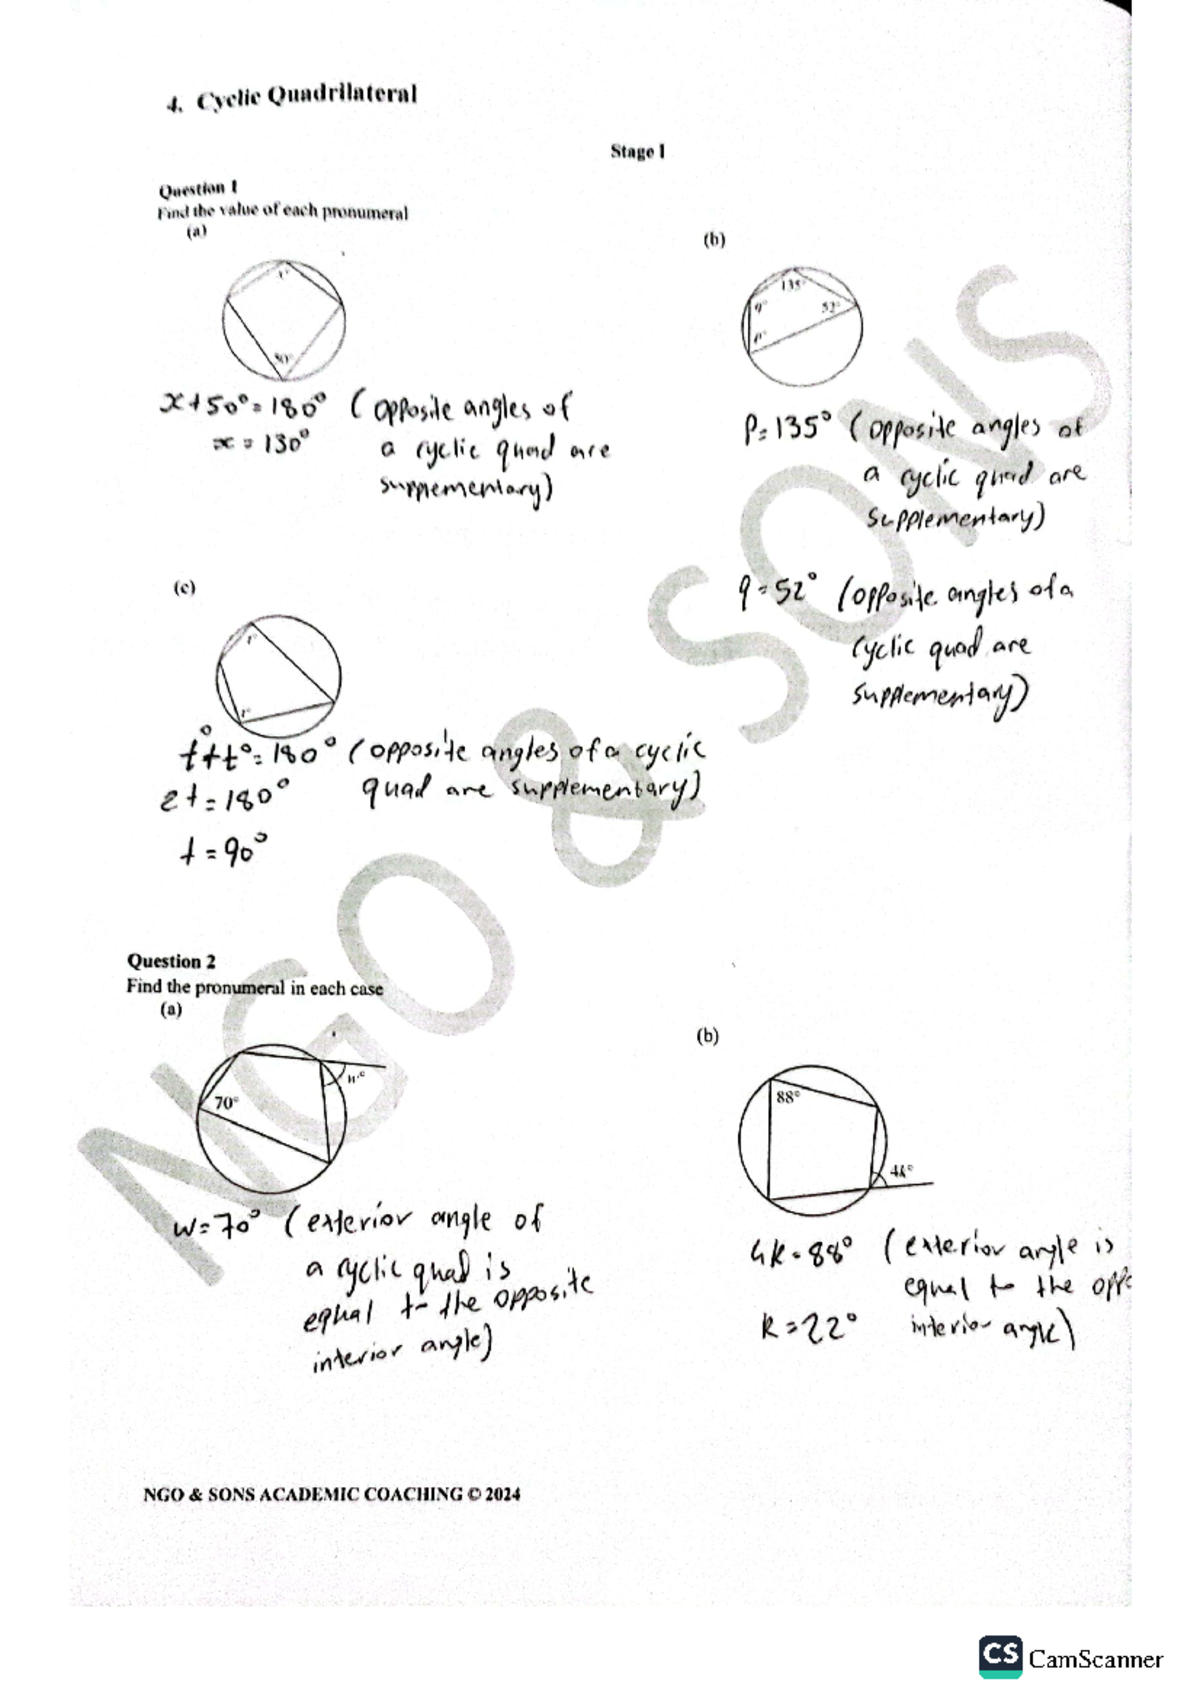 4. Cyclic Quadrilateral
Stage 1
Question 1
Find the value of each pronumeral
(a)
(b)
50°
135°
q°
52°
p°
x+50°=180° (opposite angles of
x=130° a cyclic quad are
supplementary)
P=135° (opposite angles of
a cyclic quad are
supplementary)
q=52° (opposite angles of a
cyclic quad are
supplementary)
(c)
t°
t°
t°+t°=180° (opposite angles of a cyclic
2t=180° quad are supplementary)
t=90°
Question 2
Find the pronumeral in each case
(a)
(b)
70°
w°
88°
4k°
w=70° (exterior angle of
a cyclic quad is
equal to the opposite
interior angle)
4k=88° (exterior angle is
equal to the oppo
k=22° interior angle)
NGO & SONS ACADEMIC COACHING © 2024
NGO & SONS
CS CamScanner